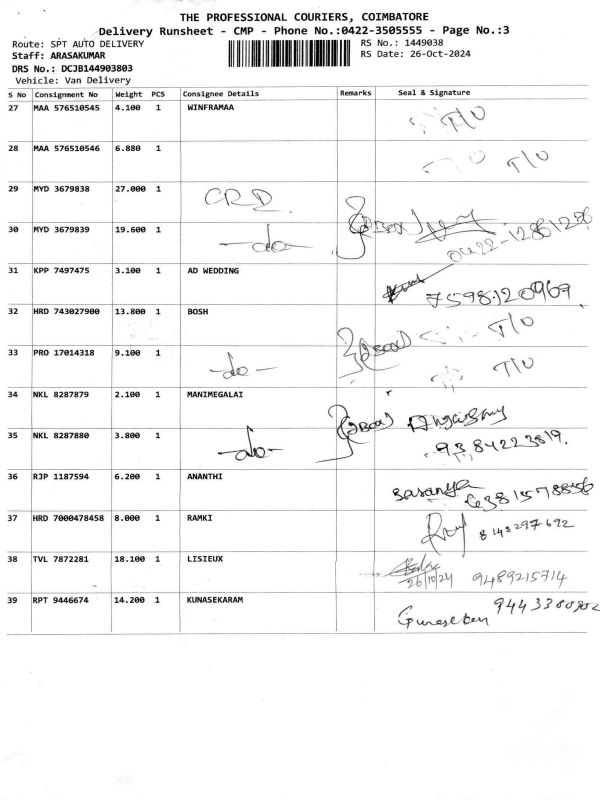 THE PROFESSIONAL COURIERS, COIMBATORE
Delivery Runsheet - CMP - Phone No.:0422-3505555 - Page No.:3
Route: SPT AUTO DELIVERY
RS No.: 1449038
Staff: ARASAKUMAR
RS Date: 26-Oct-2024
DRS No.: DCJB144903803
Vehicle: Van Delivery
S No Consignment No Weight PCS Consignee Details Remarks Seal & Signature
27 MAA 576510545 4.100 1 WINFRAMAA T/O
28 MAA 576510546 6.880 1 T/O
29 MYD 3679838 27.000 1 CRD
30 MYD 3679839 19.600 1 -do-
31 KPP 7497475 3.100 1 AD WEDDING 7598120969
32 HRD 743027900 13.800 1 BOSH T/O
33 PRO 17014318 9.100 1 -do- T/O
34 NKL 8287879 2.100 1 MANIMEGALAI
35 NKL 8287880 3.800 1 -do- 9384223819.
36 RJP 1187594 6.200 1 ANANTHI Saranya
37 HRD 7000478458 8.000 1 RAMKI 8148297692
38 TVL 7872281 18.100 1 LISIEUX 26/10/24 9489215714
39 RPT 9446674 14.200 1 KUNASEKARAM Gunaseken